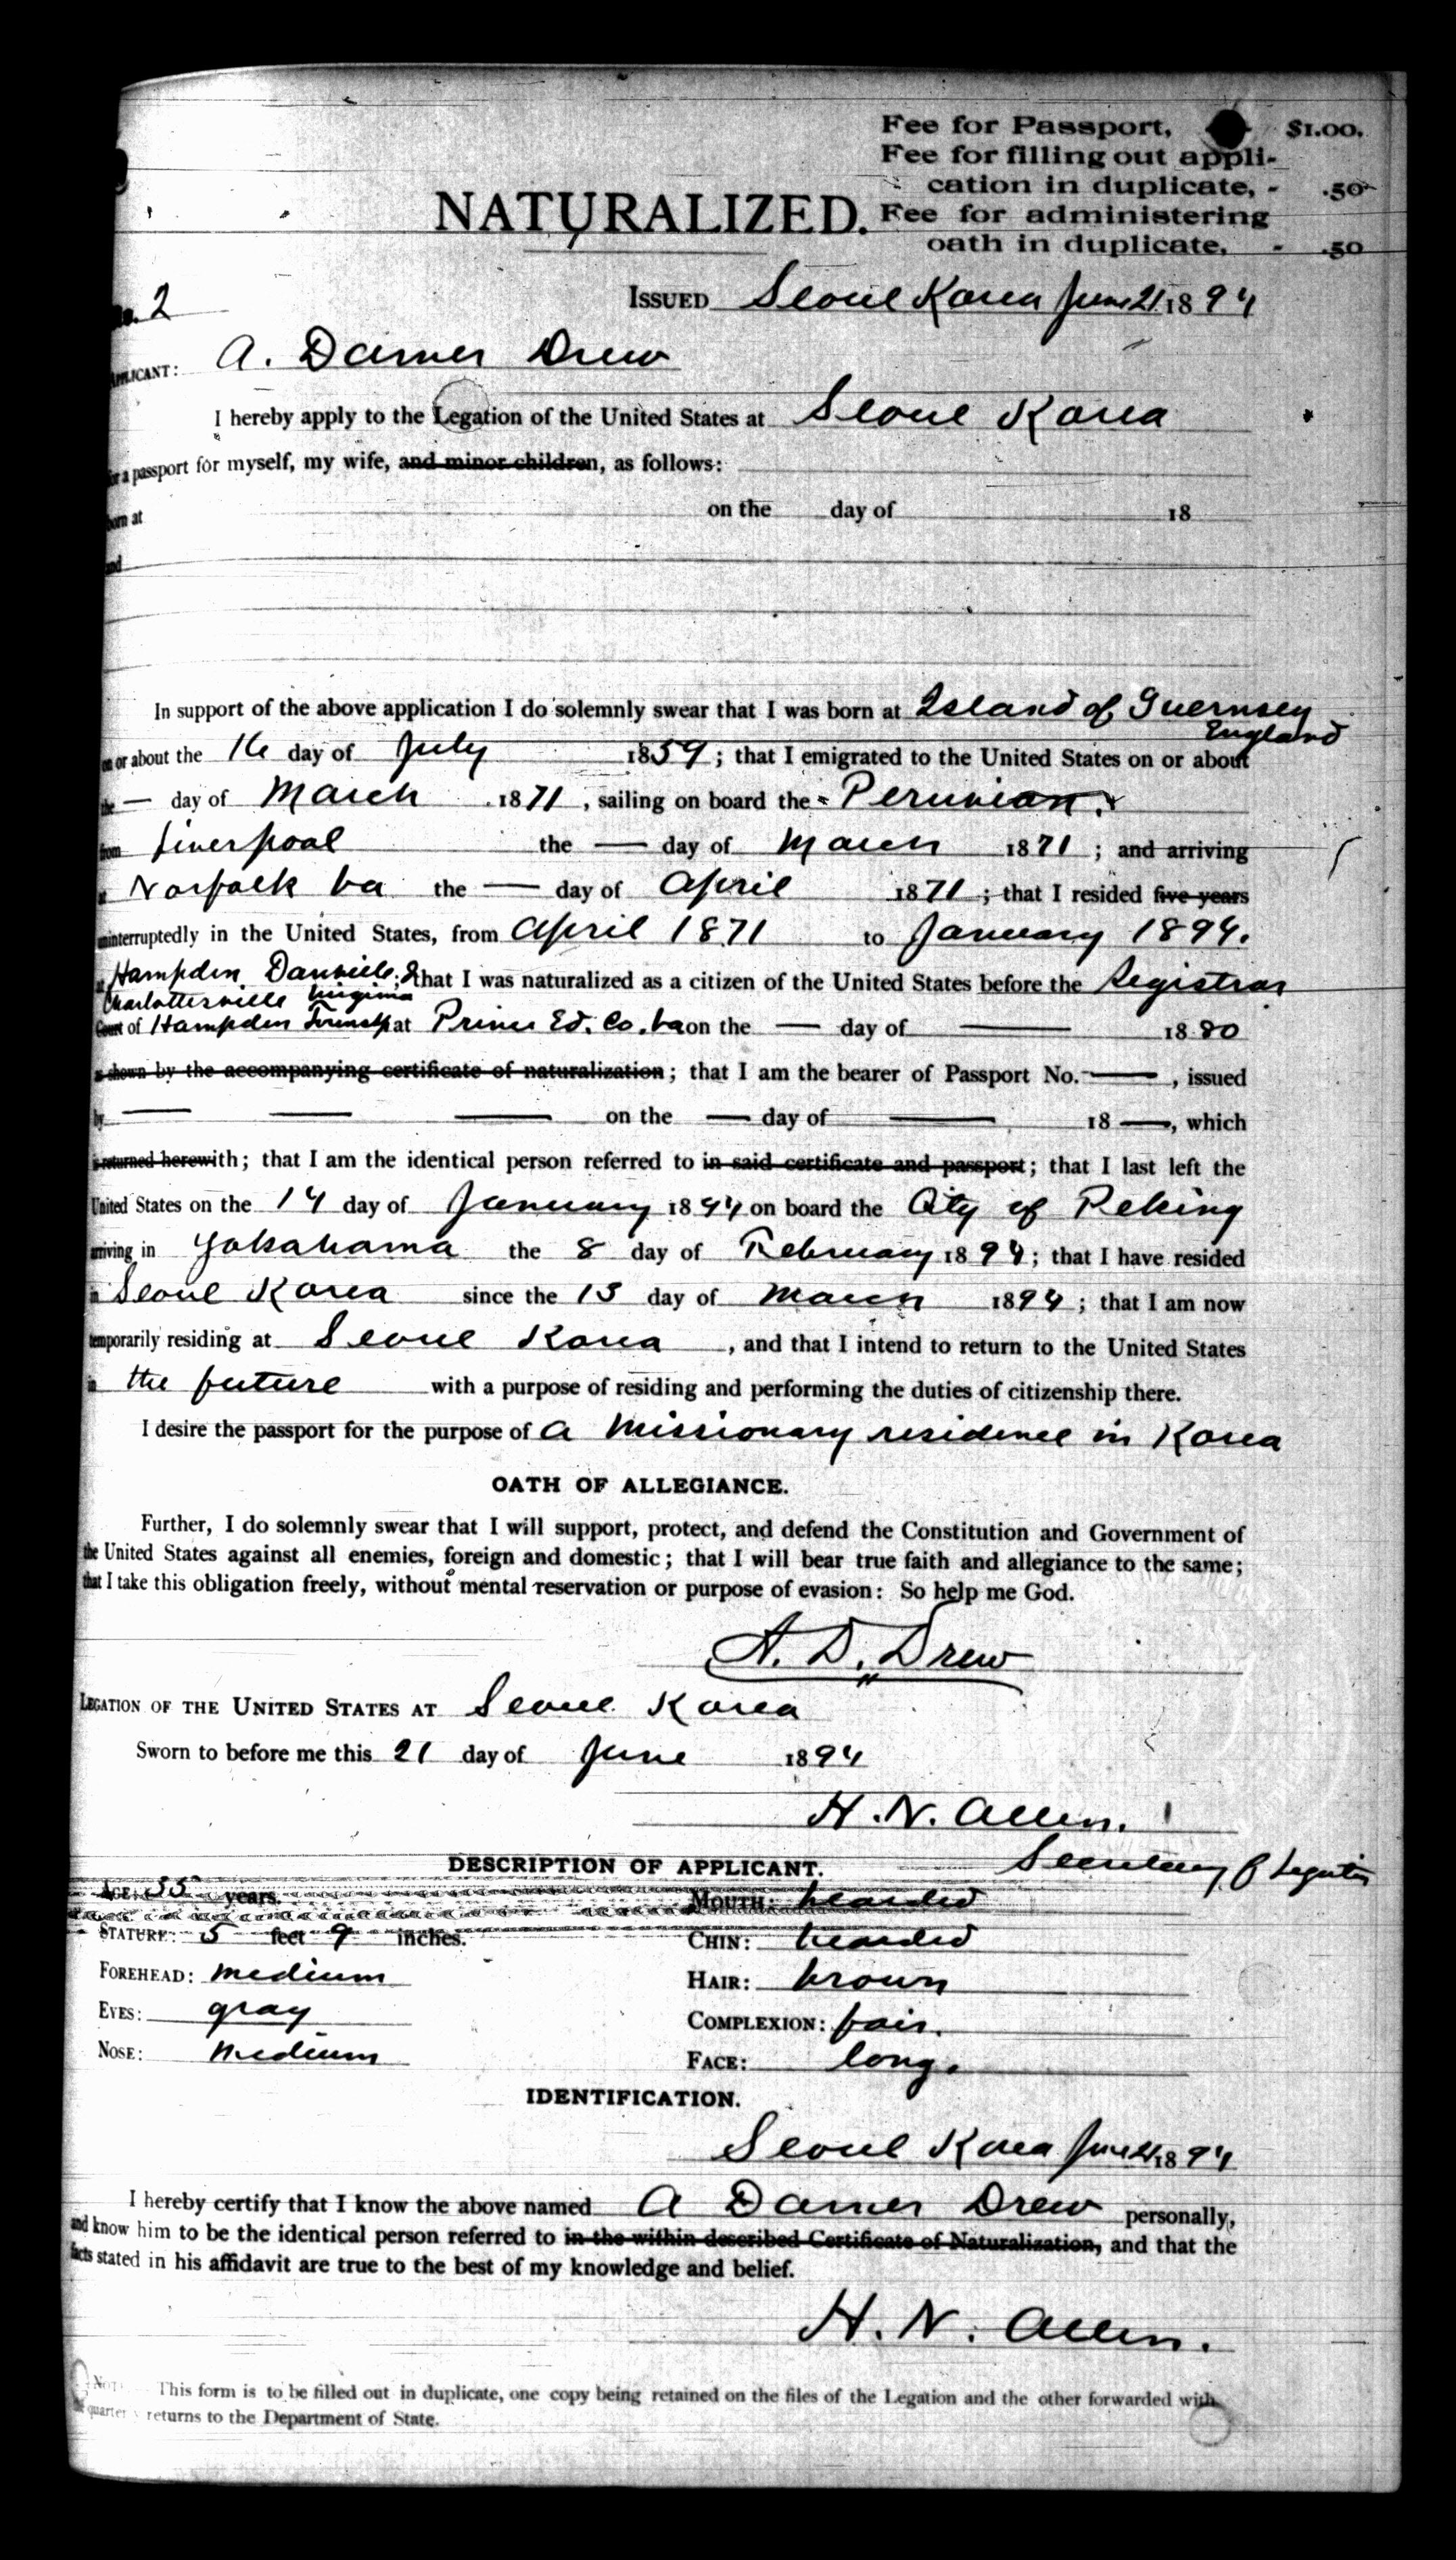 Fee for Passport, $1.00.
Fee for filling out appli-
cation in duplicate, - .50
NATURALIZED. Fee for administering
oath in duplicate, - .50
No. 2 ISSUED Seoul Korea June 21 1894
APPLICANT: A. Damer Drew
I hereby apply to the Legation of the United States at Seoul Korea
for a passport for myself, my wife, and minor children, as follows:
born at on the day of 18
and
In support of the above application I do solemnly swear that I was born at Island of Guernsey
England
on or about the 16 day of July 1859; that I emigrated to the United States on or about
the — day of March 1871, sailing on board the Peruvian.
from Liverpool the — day of March 1871; and arriving
at Norfolk Va the — day of April 1871; that I resided five years
uninterruptedly in the United States, from April 1871 to January 1894.
at Hampden Danville & that I was naturalized as a citizen of the United States before the Registrar
Charlottesville Virginia
Court of Hampden Township at Prince Ed. Co. Va on the — day of — 1880
as shown by the accompanying certificate of naturalization; that I am the bearer of Passport No. —, issued
by — — — on the — day of — 18 —, which
is returned herewith; that I am the identical person referred to in said certificate and passport; that I last left the
United States on the 14 day of January 1894 on board the City of Peking
arriving in Yokahama the 8 day of February 1894; that I have resided
in Seoul Korea since the 13 day of March 1894; that I am now
temporarily residing at Seoul Korea, and that I intend to return to the United States
in the future with a purpose of residing and performing the duties of citizenship there.
I desire the passport for the purpose of a missionary residence in Korea
OATH OF ALLEGIANCE.
Further, I do solemnly swear that I will support, protect, and defend the Constitution and Government of
the United States against all enemies, foreign and domestic; that I will bear true faith and allegiance to the same;
that I take this obligation freely, without mental reservation or purpose of evasion: So help me God.
A. D. Drew
LEGATION OF THE UNITED STATES AT Seoul Korea
Sworn to before me this 21 day of June 1894
H. N. Allen.
Secretary of Legation
DESCRIPTION OF APPLICANT.
AGE: 35 years. MOUTH: bearded
STATURE: 5 feet 9 inches. CHIN: bearded
FOREHEAD: medium HAIR: brown
EYES: gray COMPLEXION: fair.
NOSE: medium FACE: long.
IDENTIFICATION.
Seoul Korea June 21 1894
I hereby certify that I know the above named A Damer Drew personally,
and know him to be the identical person referred to in the within described Certificate of Naturalization, and that the
facts stated in his affidavit are true to the best of my knowledge and belief.
H. N. Allen.
NOTE. This form is to be filled out in duplicate, one copy being retained on the files of the Legation and the other forwarded with
the quarterly returns to the Department of State.